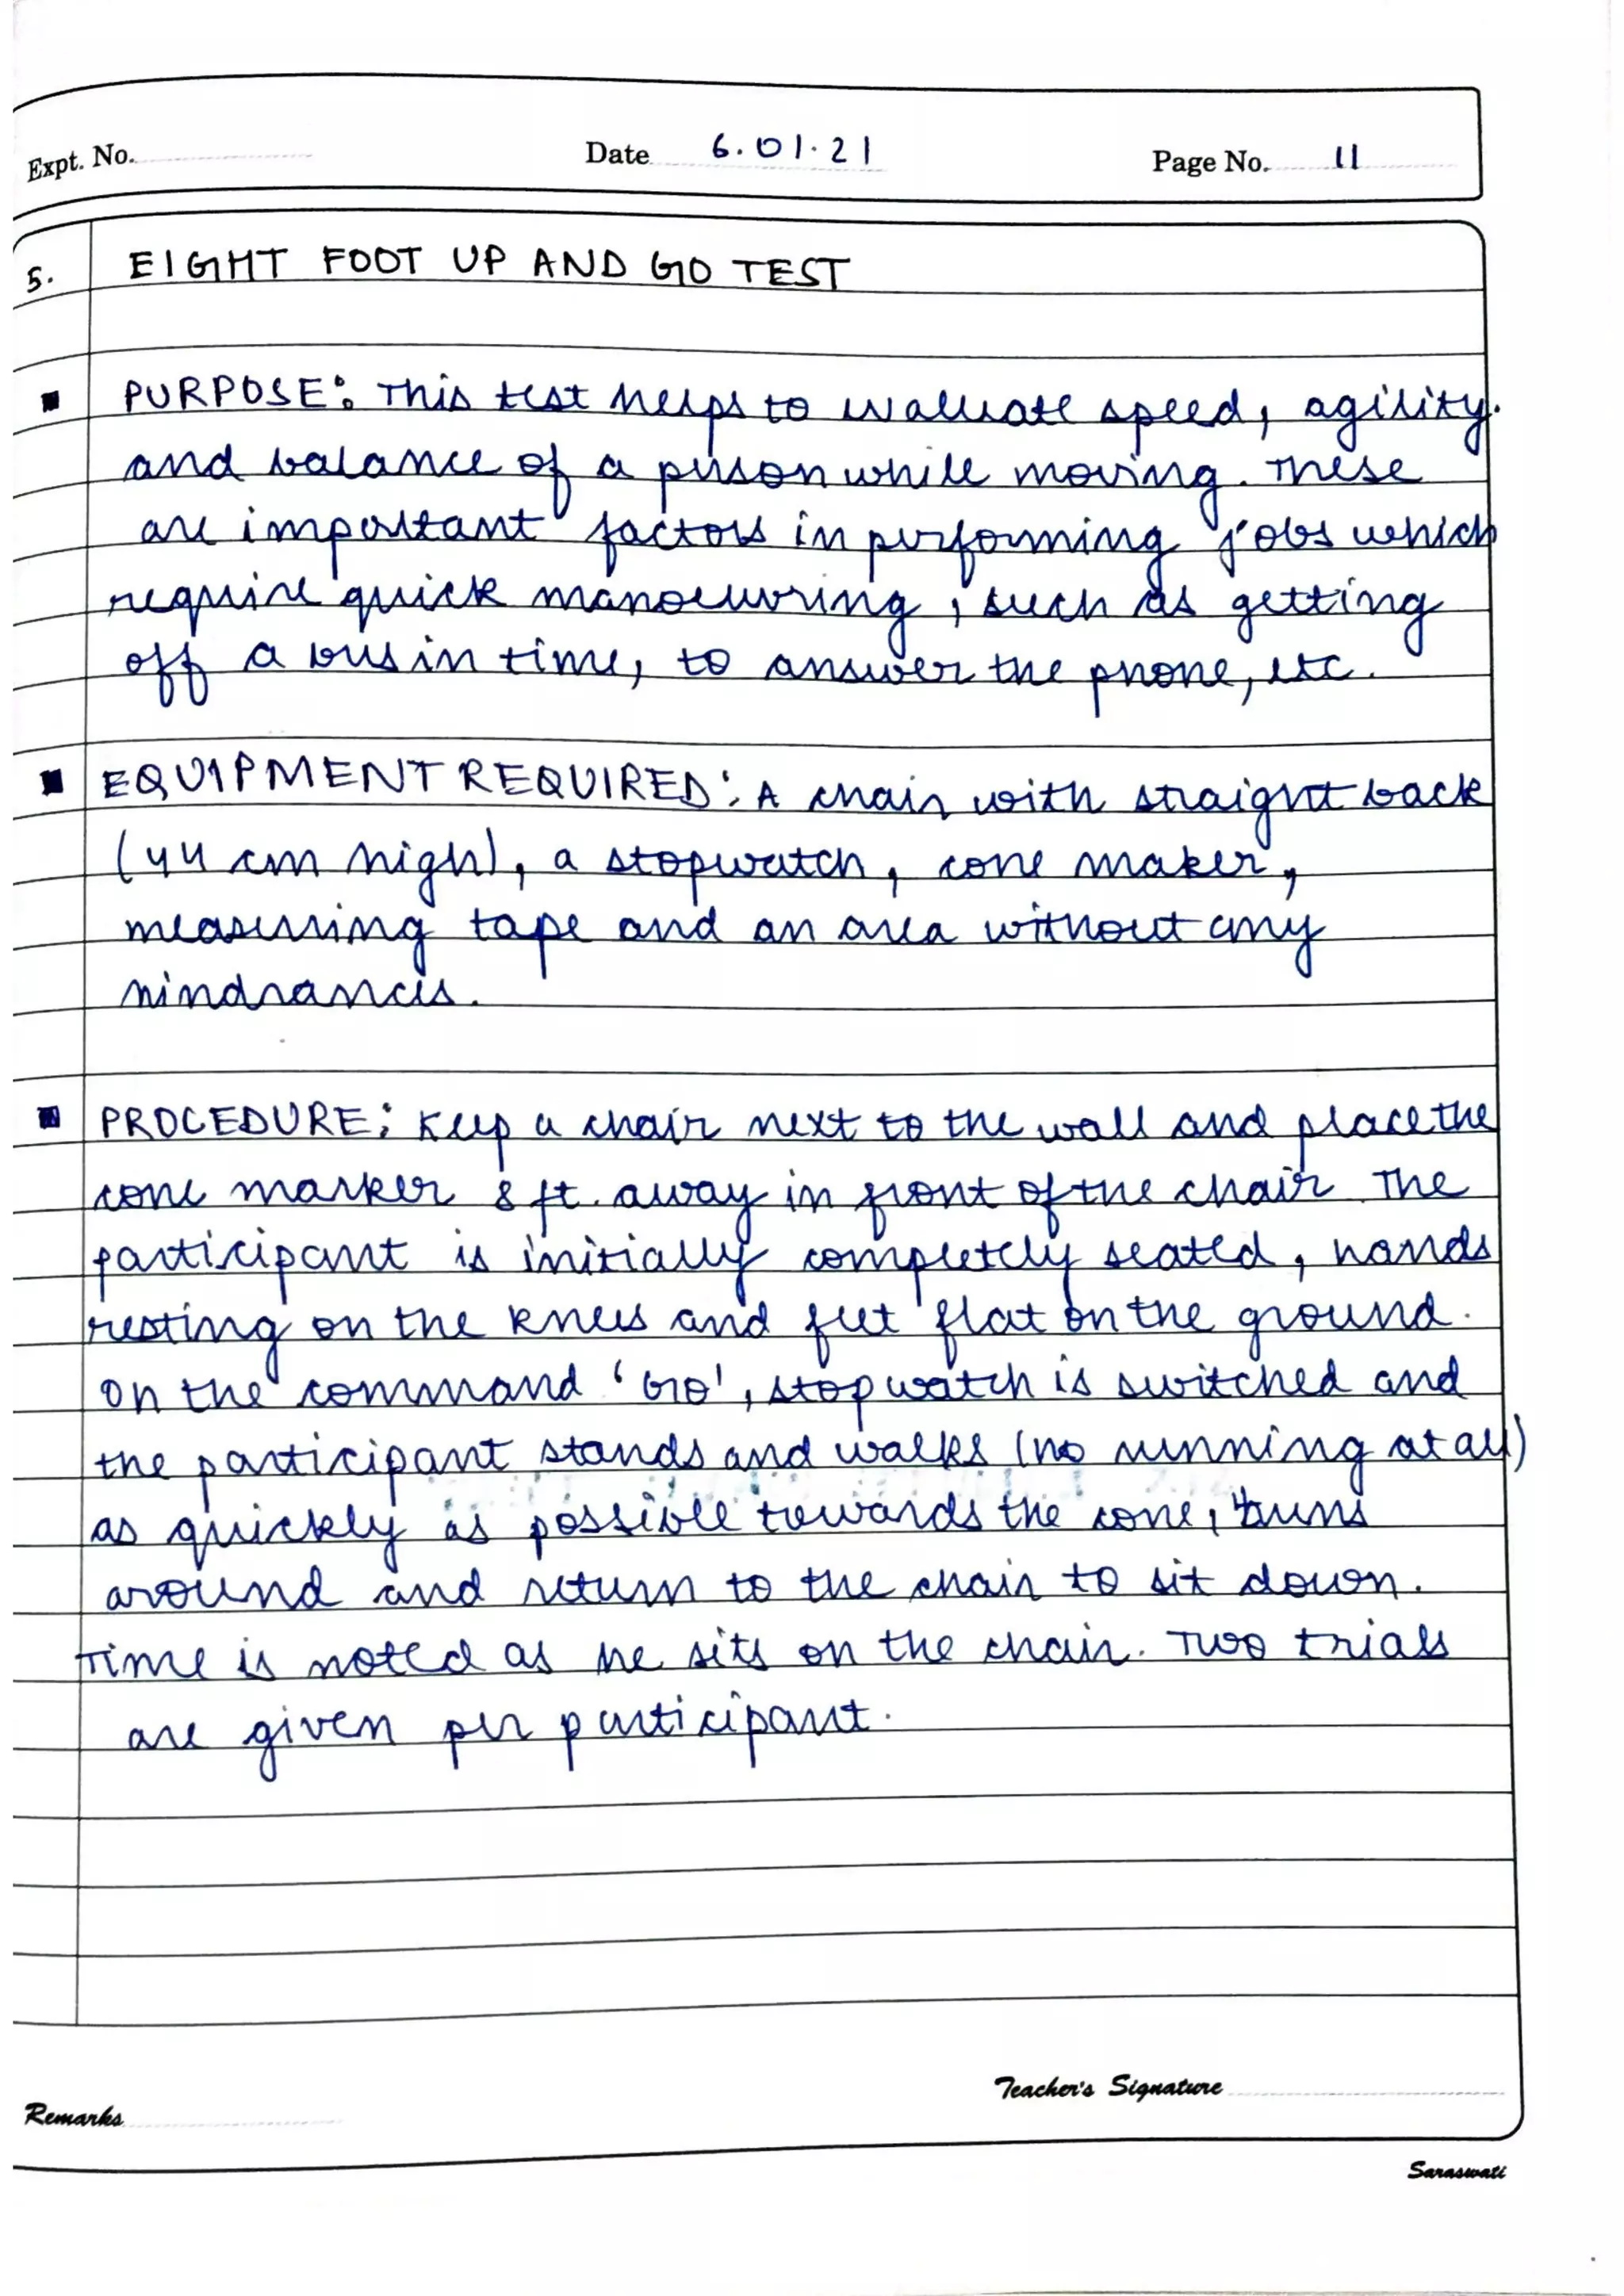 Expt. No. Date 6.01.21 Page No. 11
5. EIGHT FOOT UP AND GO TEST
PURPOSE: This test helps to evaluate speed, agility.
and balance of a person while moving. These
are important factors in performing jobs which
require quick manoeuvring, such as getting
off a bus in time, to answer the phone, etc.
EQUIPMENT REQUIRED: A chair with straight back
(44 cm high), a stopwatch, cone maker,
measuring tape and an area without any
hindrances.
PROCEDURE: Keep a chair next to the wall and place the
cone marker 8 ft. away in front of the chair. The
participant is initially completely seated, hands
resting on the knees and feet flat on the ground.
On the command 'GO', stopwatch is switched and
the participant stands and walks (no running at all)
as quickly as possible towards the cone, turns
around and return to the chair to sit down.
Time is noted as he sits on the chair. Two trials
are given per participant.
Teacher's Signature
Remarks
Saraswati